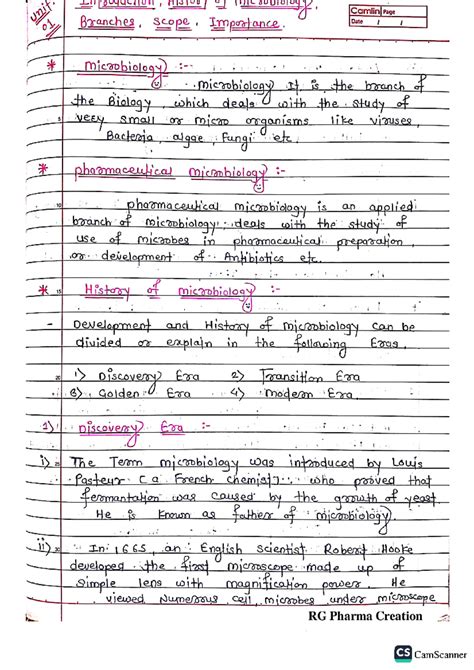 unit.
01
Introduction, History of microbiology,
Branches, scope, Importance.
Camlin Page
Date / /
* microbiology :-
microbiology It is the branch of
the Biology, which deals with the study of
5 very small or micro organisms like viruses,
Bacteria, algae, Fungi etc.
* pharmaceutical microbiology :-
10 pharmaceutical microbiology is an applied
branch of microbiology deals with the study of
use of microbes in pharmaceutical preparation,
or development of Antibiotics etc.
* 15 History of microbiology :-
- Development and History of microbiology can be
divided or explain in the following Eras.
20 1) Discovery Era 2) Transition Era
3) Golden Era 4) modern Era
1) Discovery Era :-
i) 25 The Term microbiology was introduced by Louis
Pasteur (a French chemist) who proved that
fermantation was caused by the growth of yeast.
He is known as father of microbiology.
ii) 30 In 1665, an English scientist Robert Hooke
developed the first microscope made up of
simple lens with magnification power. He
viewed Numerous cell microbes under microscope
RG Pharma Creation
CS CamScanner